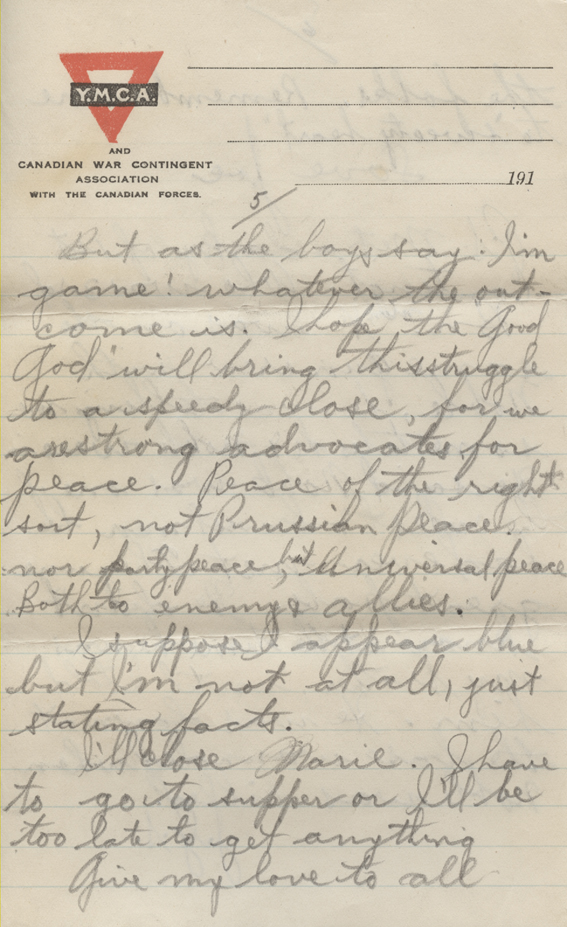 Y.M.C.A.
AND
CANADIAN WAR CONTINGENT
ASSOCIATION
WITH THE CANADIAN FORCES.
191
5/
But as the boys say: I'm
game! whatever the out-
come is. I hope the Good
God will bring this struggle
to a speedy close, for we
are strong advocates for
peace. Peace of the right
sort, not Prussian peace.
nor party peace, but Universal peace
Both to enemy & allies.
I suppose I appear blue
but I'm not at all, just
stating facts.
I'll close Marie. I have
to go to supper or I'll be
too late to get anything
Give my love to all